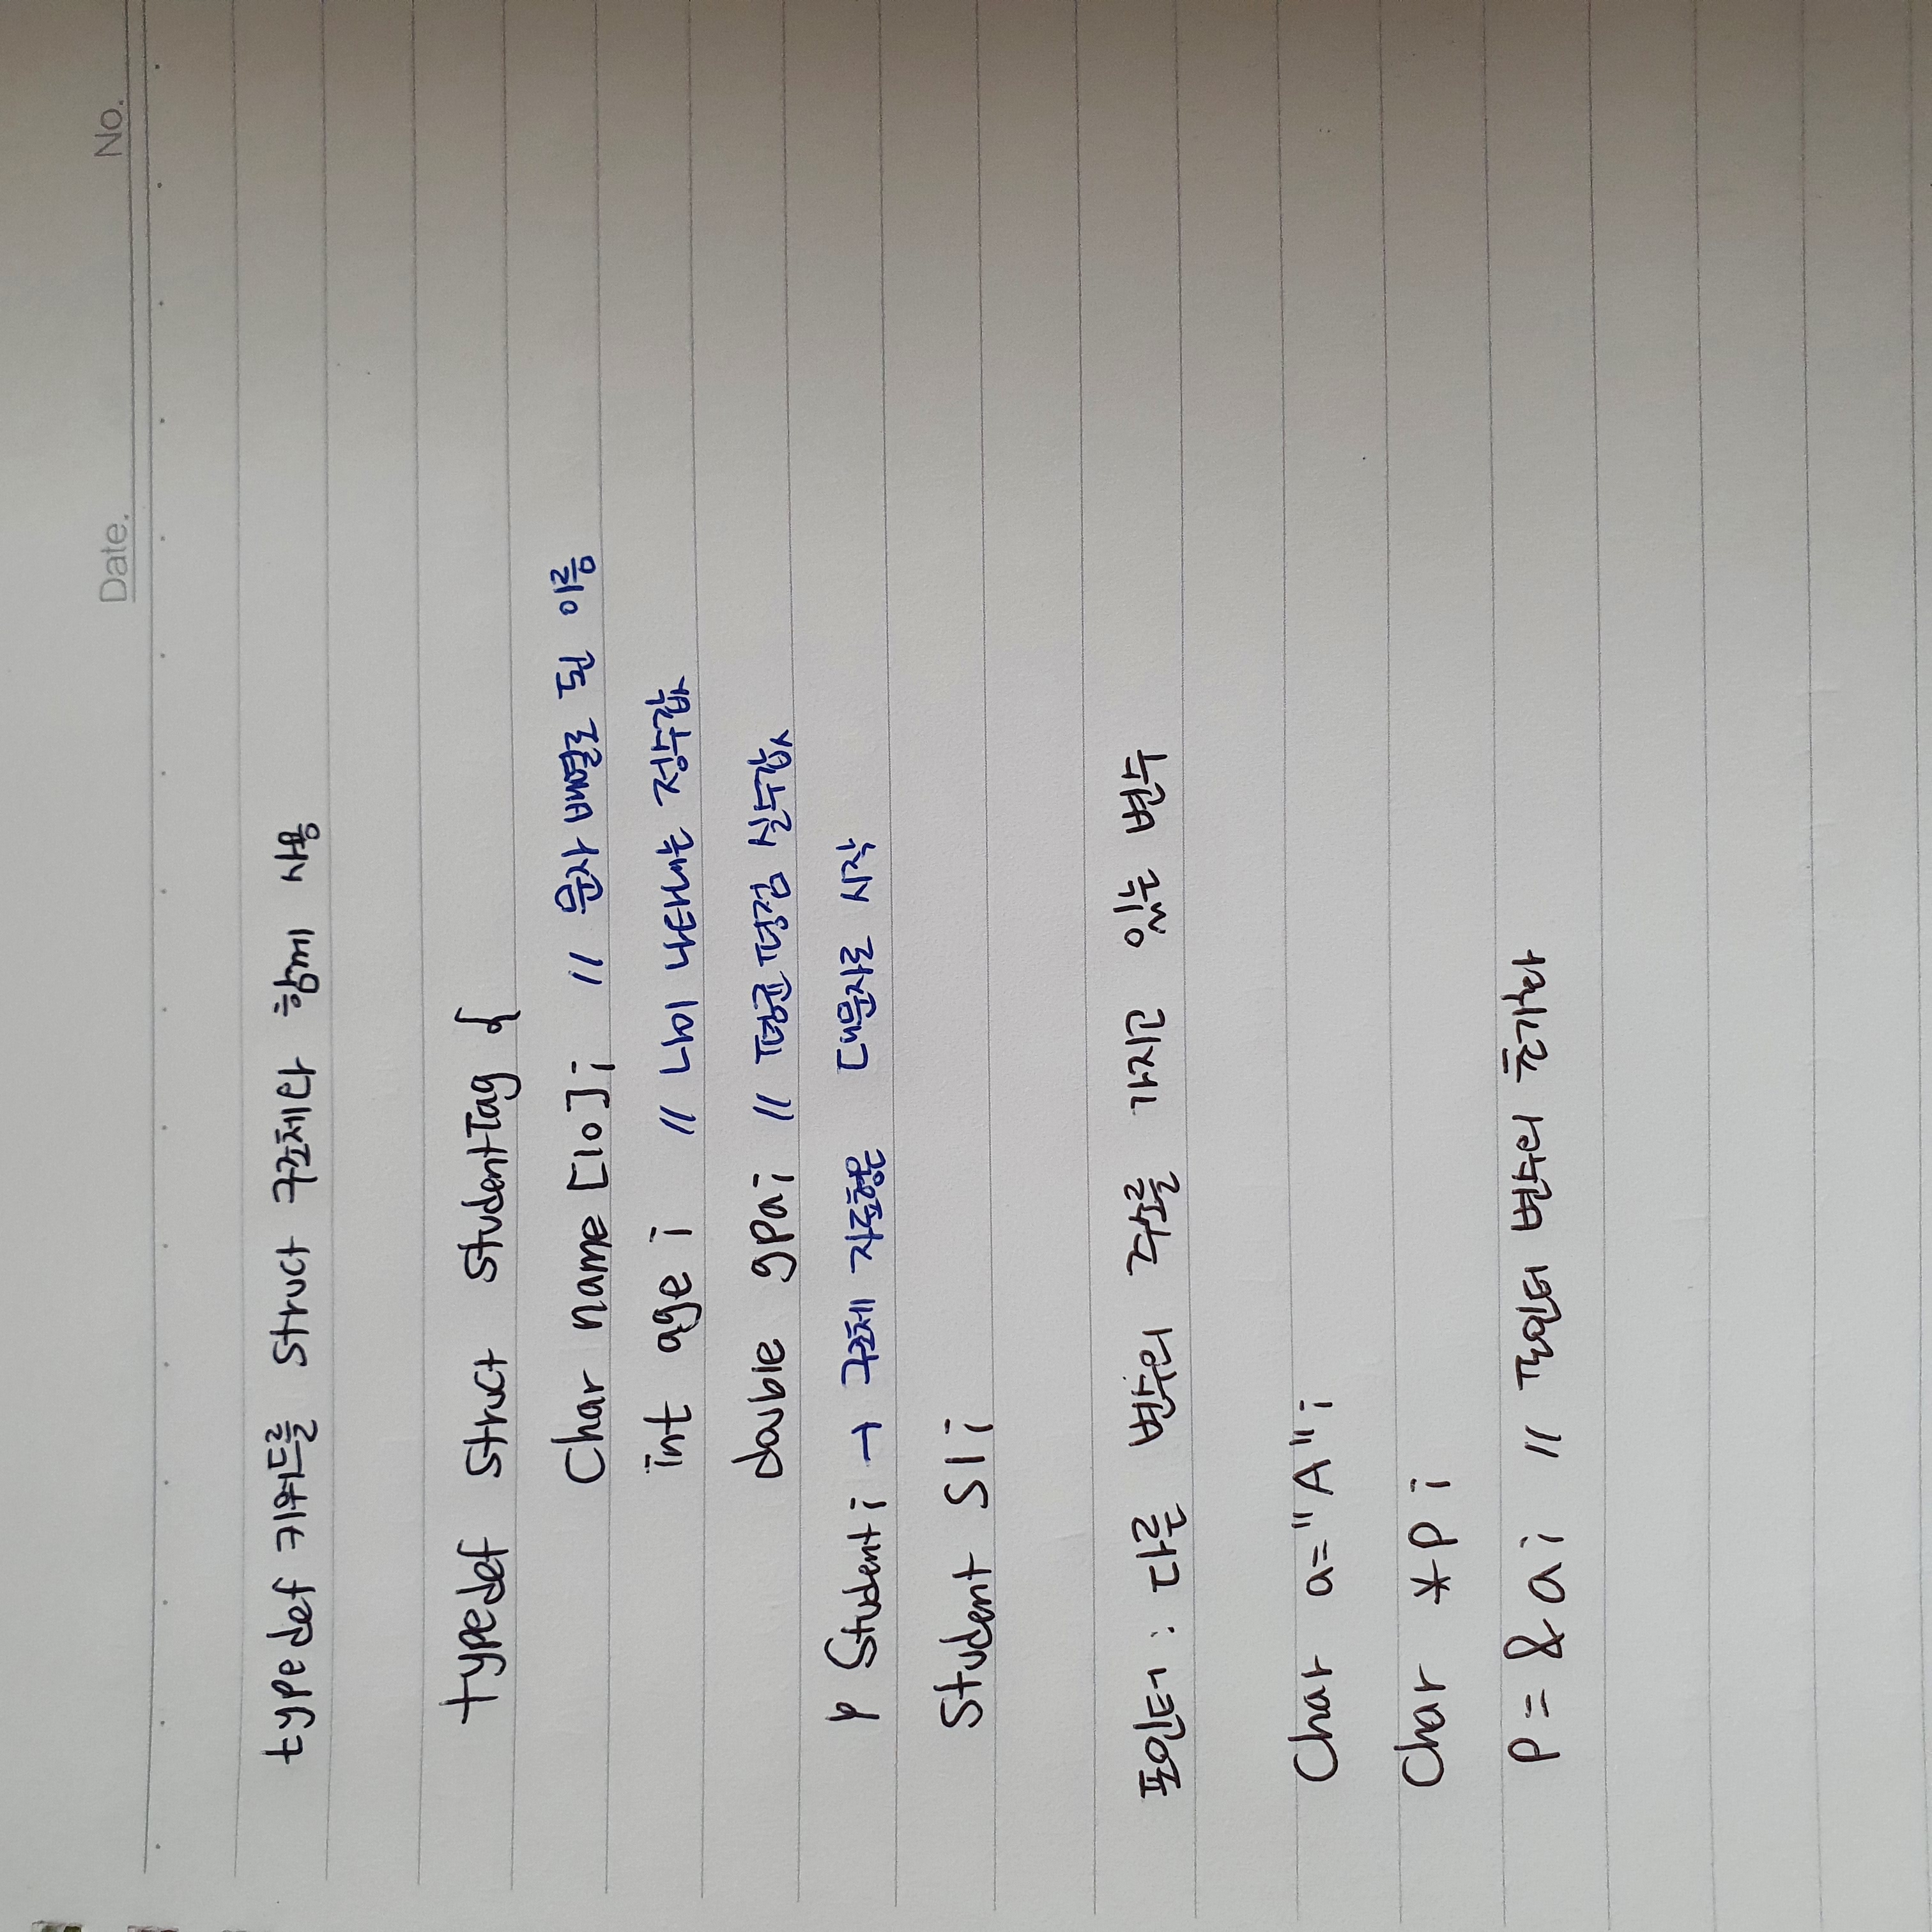 Date. No.
typedef 키워드를 struct 구조체와 함께 사용
typedef struct studentTag {
Char name [10]; // 문자 배열로 된 이름
int age ; // 나이 나타내는 정수값
double gpa; // 평균평점 실수값
} Student; → 구조체 자료형은 대문자로 시작
Student S1;
포인터 : 다른 변수의 주소를 가지고 있는 변수
Char a="A";
Char *p ;
P = & a; // 포인터 변수의 초기화